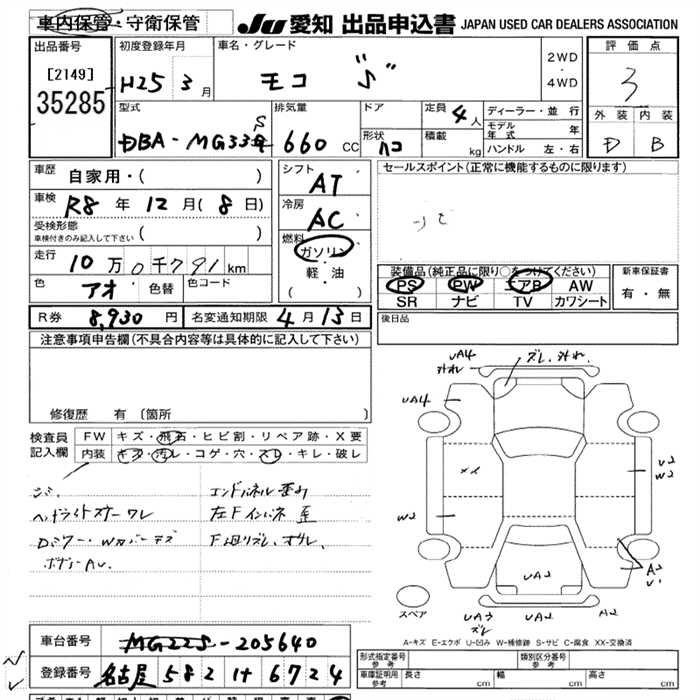 車内保管・守衛保管
JU 愛知 出品申込書 JAPAN USED CAR DEALERS ASSOCIATION
出品番号
[2149]
35285
初度登録年月
H25 3 月
車名・グレード
モコ "S"
2WD
・
4WD
評価点
3
外装 内装
D B
型式
DBA-MG33S
排気量
660 CC
ドア
形状
ハコ
定員 4 人
積載 kg
ディーラー・並行
モデル年式 年
ハンドル 左・右
車歴 自家用・( )
車検 R8 年 12 月 ( 8 日)
受検形態
車検付きのみ記入して下さい ( )
走行 10 万 0 千 791 km
色 アオ 色替 色コード
シフト
AT
冷房
AC
燃料
ガソリン
・
軽・油
( )
セールスポイント(正常に機能するものに限ります)
装備品(純正品に限り○をつけてください)
PS PW エアB AW
SR ナビ TV カワシート
新車保証書
有・無
R券 8,930 円 名変通知期限 4 月 13 日
後日品
注意事項申告欄(不具合内容等は具体的に記入して下さい)
修復歴 有 〔箇所
検査員
記入欄
FW キズ・飛石・ヒビ割・リペア跡・X要
内装 キズ・汚レ・コゲ・穴・スレ・キレ・破レ
エンドパネル歪み
ヘッドライトステーワレ
左Fインパネ歪
Dミラー・Wカバーキズ
ボデーAU.
UA4
外れ
ズレ、外れ、
UA4
メイ
W2
U2
W2
UA2
A2
U1
UA3
ズレ
UA2
UA2
スペア
A-キズ E-エクボ U-凹み W-補修跡 S-サビ C-腐食 XX-交換済
車台番号 MG22S-205640
登録番号 名古屋 582 け 6724
形式指定番号
参考
類別区分番号
参考
車庫証明用
参考
長さ cm 幅 cm 高さ cm